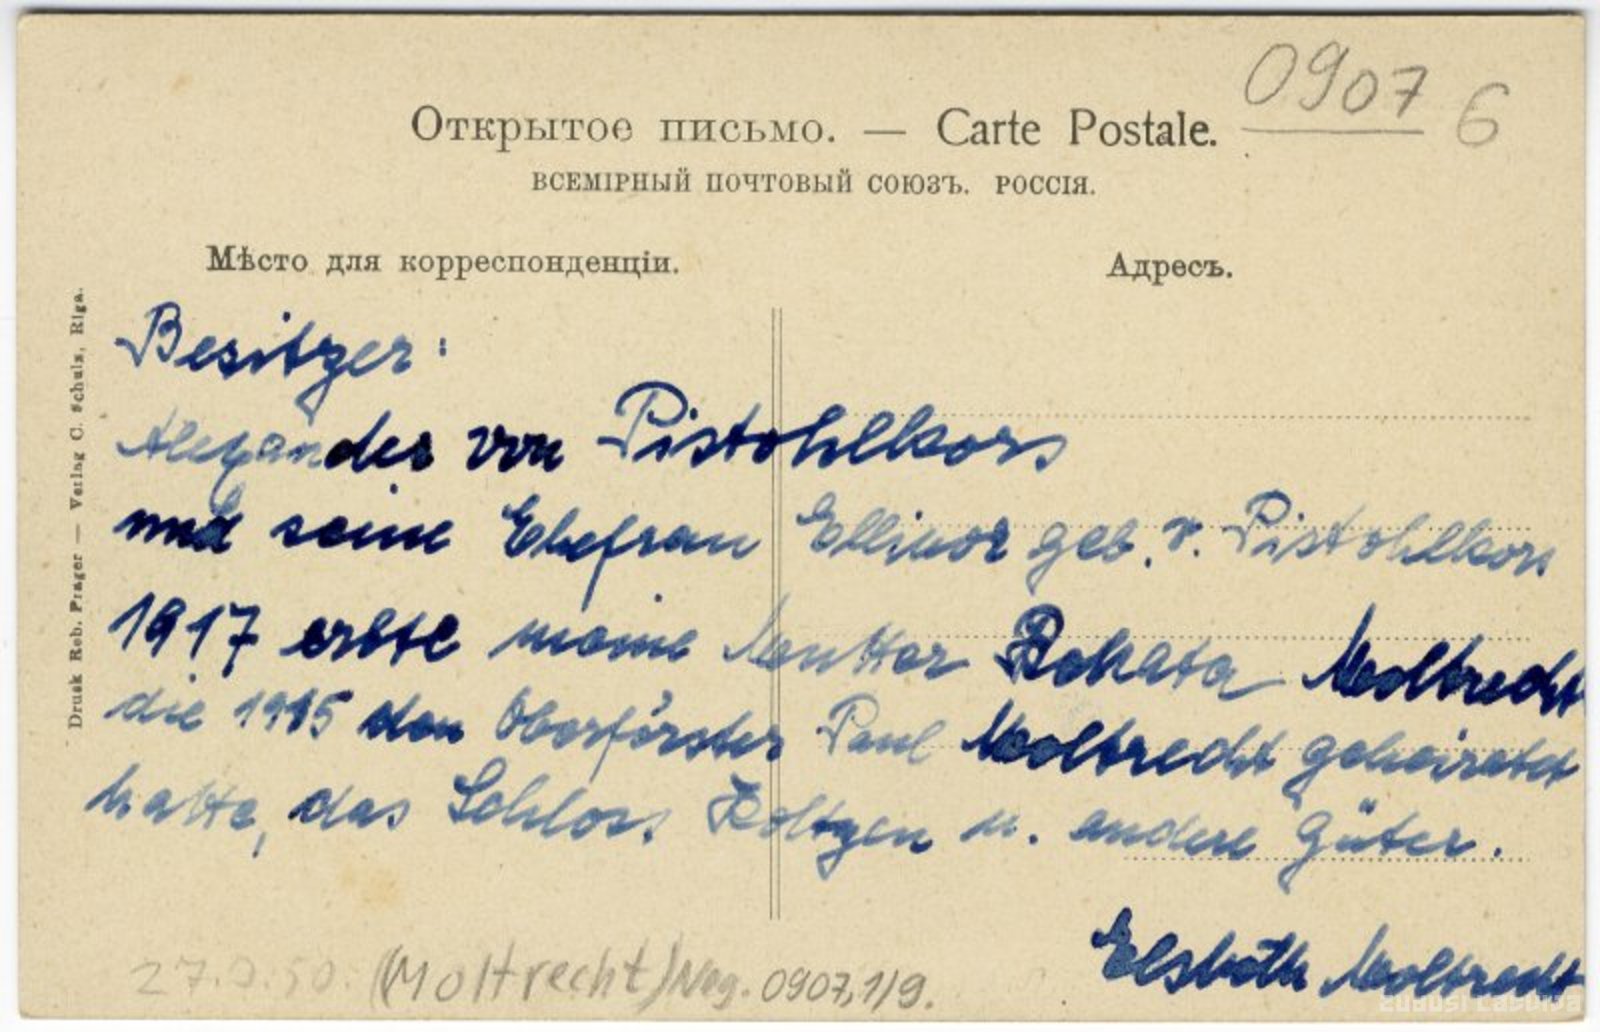 0907 6
Открытое письмо. — Carte Postale.
ВСЕМІРНЫЙ ПОЧТОВЫЙ СОЮЗЪ. РОССІЯ.
Мѣсто для корреспонденціи.
Адресъ.
Druck Rob. Prager — Verlag C. Schulz, Riga.
Besitzer:
Alexander von Pistohlkors
und seine Ehefrau Ellinor geb. v. Pistohlkors
1917 erbte meine Mutter Moltrecht
die den Oberförster Paul Moltrecht geheiratet
hatte, das Schloss Koltzen u. andere Güter.
Elsbeth Moltrecht
(Moltrecht) Neg. 0907,1/9.